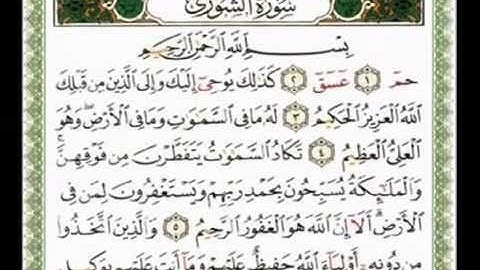 سُورَةُ الشُّورَىٰ
بِسْمِ اللَّهِ الرَّحْمَٰنِ الرَّحِيمِ
حمٓ ١ عٓسٓقٓ ٢ كَذَٰلِكَ يُوحِىٓ إِلَيْكَ وَإِلَى ٱلَّذِينَ مِن قَبْلِكَ
ٱللَّهُ ٱلْعَزِيزُ ٱلْحَكِيمُ ٣ لَهُۥ مَا فِى ٱلسَّمَٰوَٰتِ وَمَا فِى ٱلْأَرْضِ ۖ وَهُوَ
ٱلْعَلِىُّ ٱلْعَظِيمُ ٤ تَكَادُ ٱلسَّمَٰوَٰتُ يَتَفَطَّرْنَ مِن فَوْقِهِنَّ ۚ
وَٱلْمَلَٰٓئِكَةُ يُسَبِّحُونَ بِحَمْدِ رَبِّهِمْ وَيَسْتَغْفِرُونَ لِمَن فِى
ٱلْأَرْضِ ۗ أَلَآ إِنَّ ٱللَّهَ هُوَ ٱلْغَفُورُ ٱلرَّحِيمُ ٥ وَٱلَّذِينَ ٱتَّخَذُوا۟
مِن دُونِهِۦٓ أَوْلِيَآءَ ٱللَّهُ حَفِيظٌ عَلَيْهِمْ وَمَآ أَنتَ عَلَيْهِم بِوَكِيلٍ